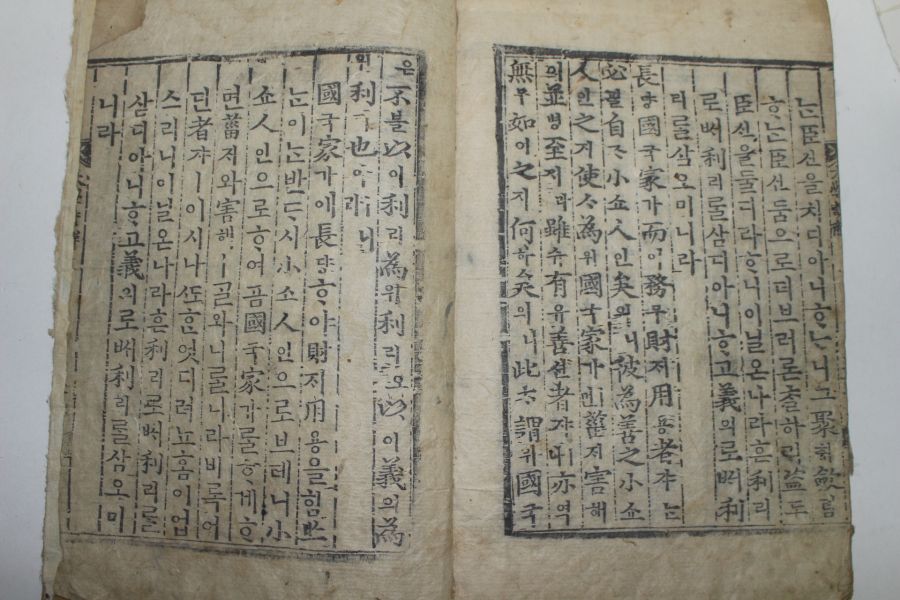 ᄂᆞᆫ臣신을치디아니ᄒᆞᄂᆞ니그聚취斂렴
ᄒᆞᄂᆞᆫ臣신둠으로더브러론ᄎᆞᆯ하리盜도
臣신을둘디라ᄒᆞ니이닐온나라ᄒᆞᆫ利리
로ᄡᅥ利리ᄅᆞᆯ삼디아니ᄒᆞ고義의로ᄡᅥ利
리ᄅᆞᆯ삼오미니라
長댱國국家가而이務무財ᄌᆡ用용者쟈ᄂᆞᆫ
必필自ᄌᆞ小쇼人인矣의니彼爲善之小쇼
人인之지使ᄉᆞ爲위國국家가ㅣ면菑ᄌᆡ害해
의並병至지라雖슈有유善션者쟈ㅣ나亦역
無무如여之지何하矣의니此ᄎᆞ謂위國국
은不블以이利리爲위利리오以이義의爲
위利리也야ㅣ니라
國국家가에長댱ᄒᆞ야財ᄌᆡ用용을힘ᄡᅳ
ᄂᆞᆫ이ᄂᆞᆫ반ᄃᆞ시小쇼人인으로브테니小
쇼人인으로ᄒᆞ여곰國국家가ᄅᆞᆯᄒᆞ게ᄒᆞ
면菑ᄌᆡ와害해ㅣᄀᆞᆯ와니를디라비록어
딘者쟈ㅣ이시나ᄯᅩᄒᆞᆫ엇디려뇨홈이업
스리니이닐온나라ᄒᆞᆫ利리로ᄡᅥ利리ᄅᆞᆯ
삼디아니ᄒᆞ고義의로ᄡᅥ利리ᄅᆞᆯ삼오미
니라